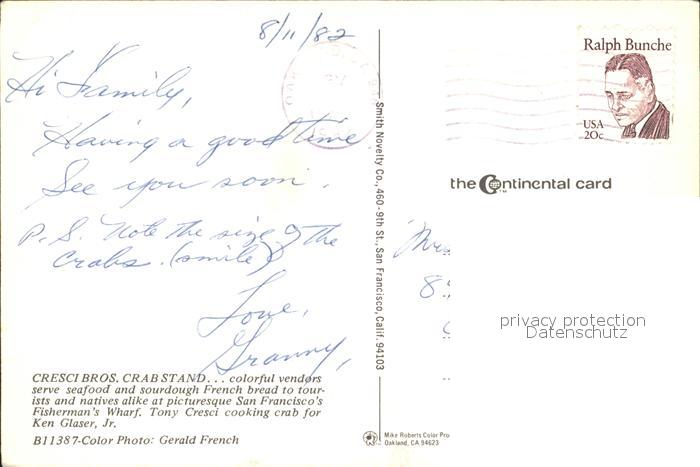 8/11/82
Hi Family,
Having a good time
See you soon.
P.S. Note the size of the
Crabs. (smile)
Love,
Granny,
CRESCI BROS. CRAB STAND . . . colorful vendors
serve seafood and sourdough French bread to tour-
ists and natives alike at picturesque San Francisco's
Fisherman's Wharf. Tony Cresci cooking crab for
Ken Glaser, Jr.
B11387-Color Photo: Gerald French
Smith Novelty Co., 460-9th St., San Francisco, Calif. 94103
Ralph Bunche
USA
20c
the Continental card
TM
Mrs
8
privacy protection
Datenschutz
Mike Roberts Color Pro
Oakland, CA 94623